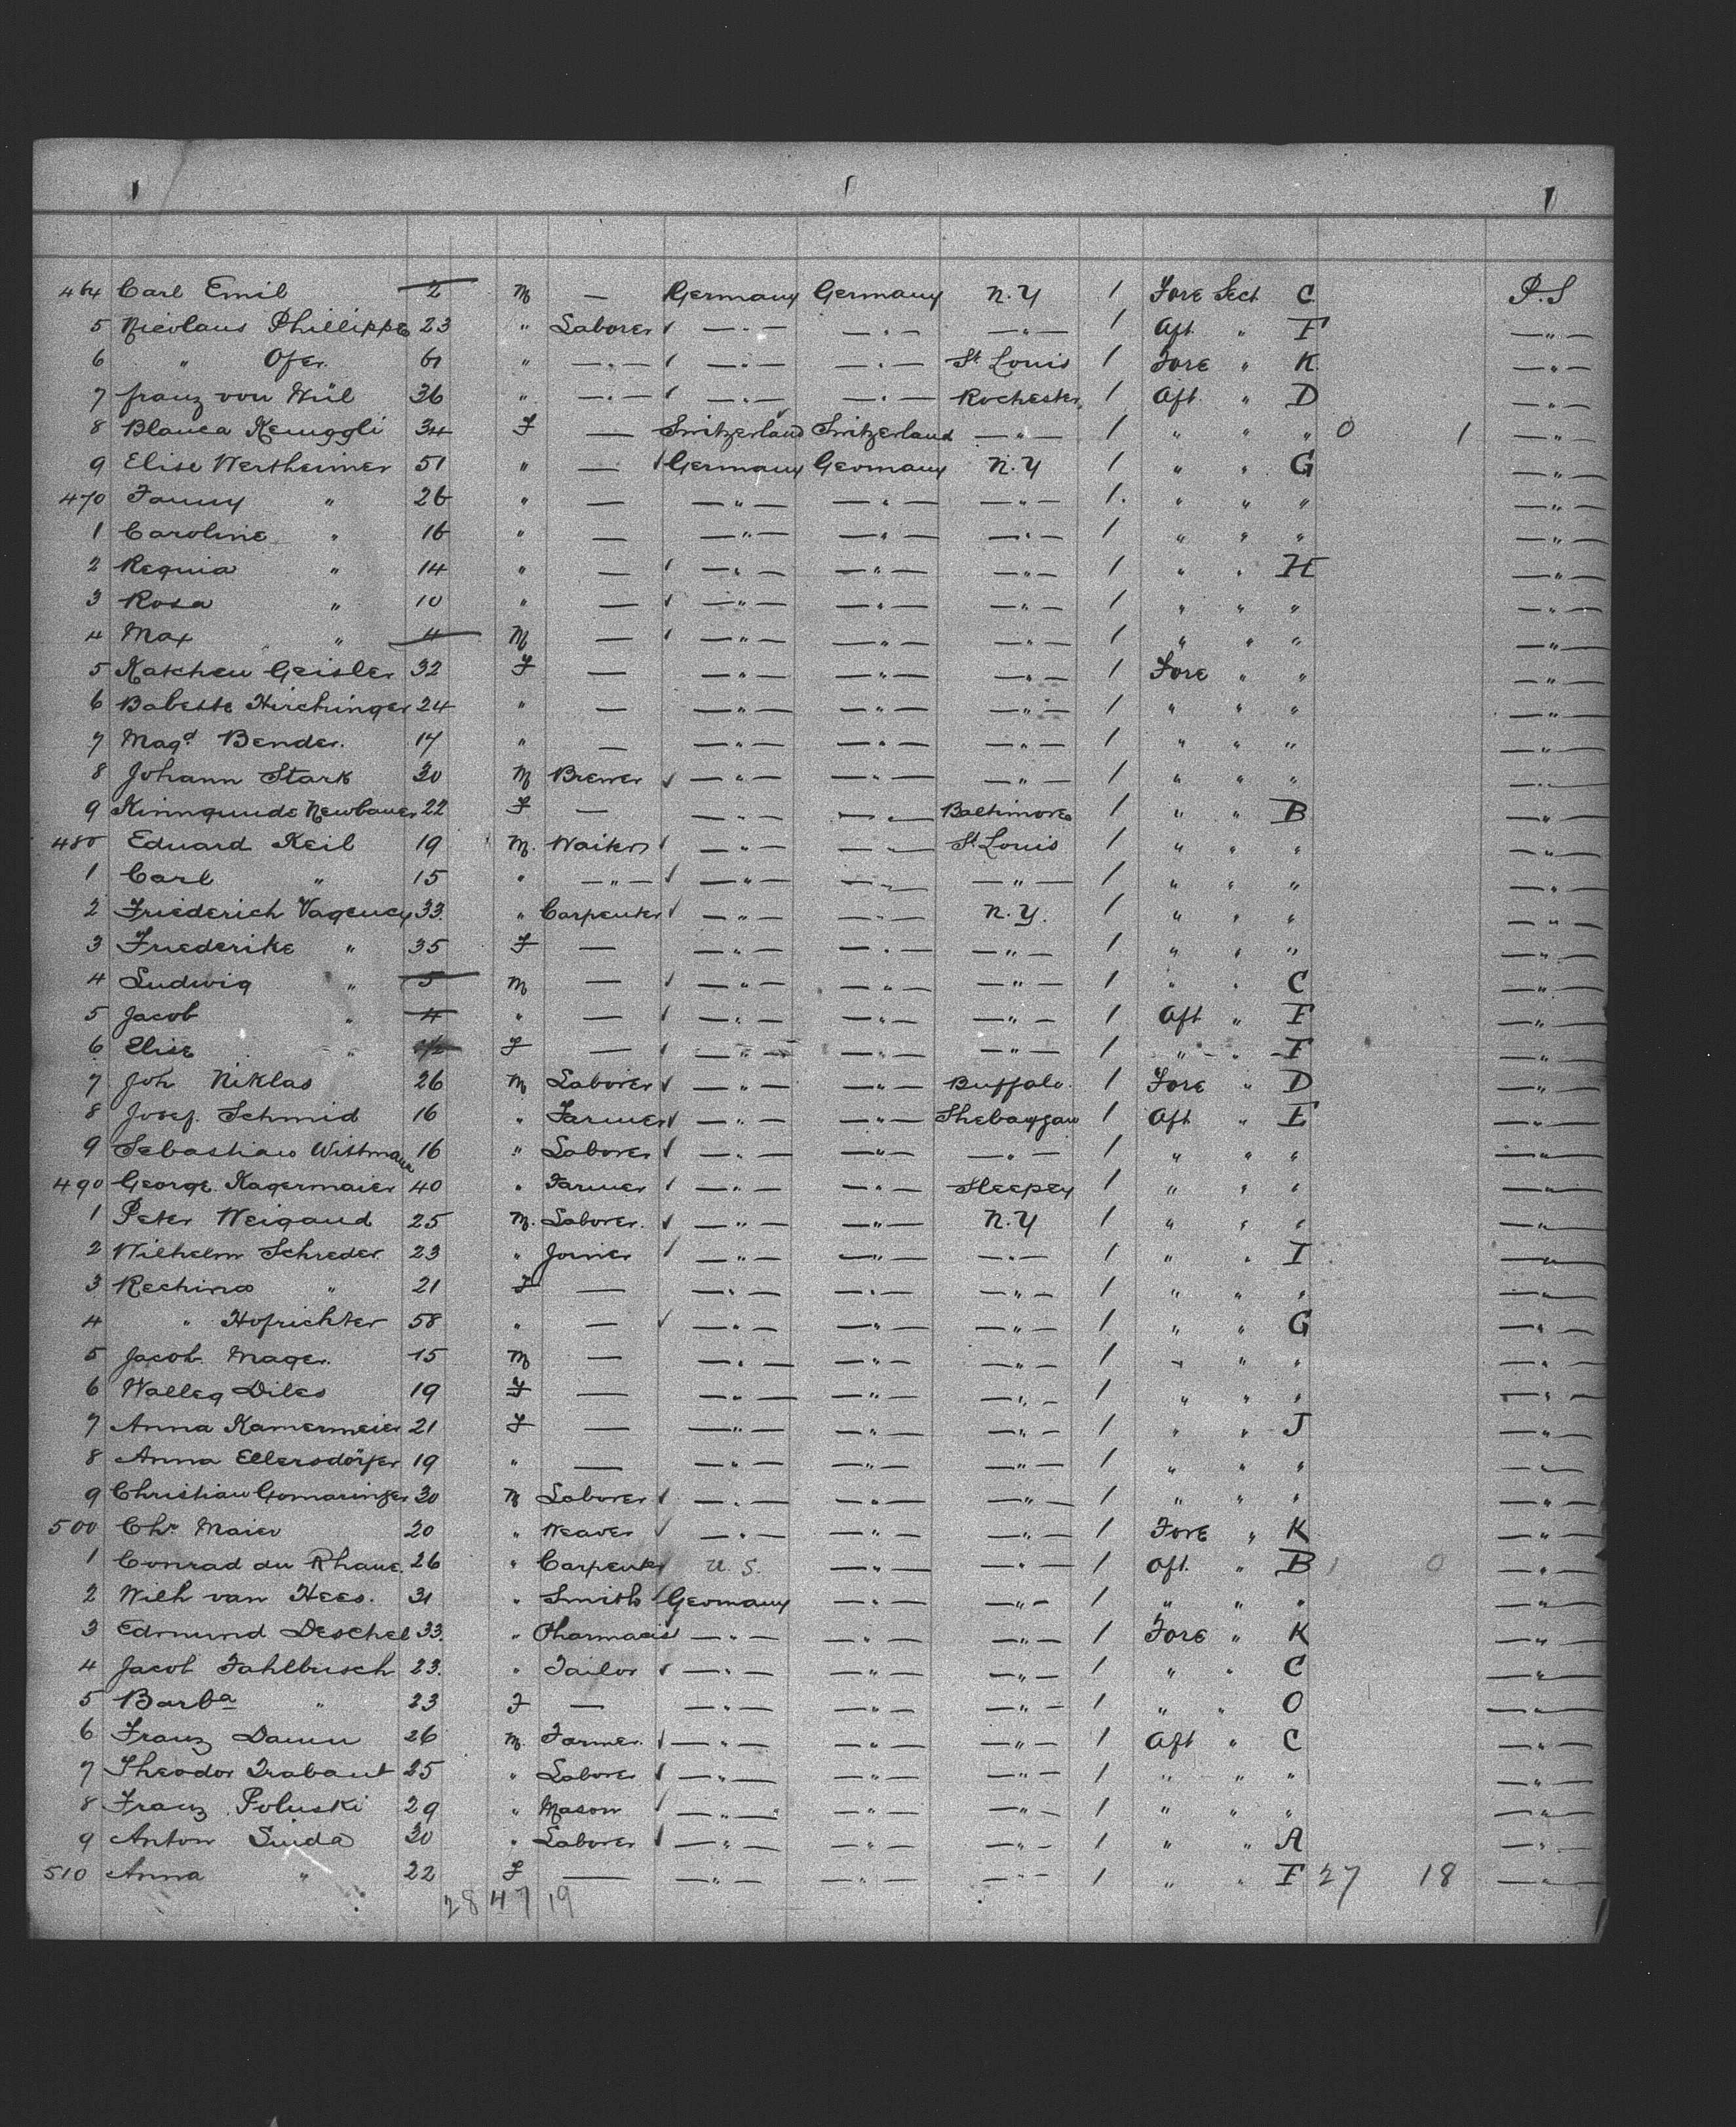 464 Carl Emil 2 M — Germany Germany N.Y 1 Fore Sect C P.S
5 Nicolaus Phillippe 23 " Laborer —"— —"— —"— 1 Aft " F —"—
6 " Ofer. 61 " —"— —"— —"— St. Louis 1 Fore " K —"—
7 franz von Wül 36 " —"— —"— —"— Rochester 1 Aft " D —"—
8 Blanca Kenggli 34 F — Switzerland Switzerland —"— 1 " " " 0 1 —"—
9 Elise Wertheimer 51 " — Germany Germany N.Y 1 " " G —"—
470 Fanny " 26 " — —"— —"— —"— 1 " " " —"—
1 Caroline " 16 " — —"— —"— —"— 1 " " " —"—
2 Regina " 14 " — —"— —"— —"— 1 " " H —"—
3 Rosa " 10 " — —"— —"— —"— 1 " " " —"—
4 Max " 4 M — —"— —"— —"— 1 " " " —"—
5 Katchen Geisler 32 F — —"— —"— —"— 1 Fore " " —"—
6 Babette Hirchinger 24 " — —"— —"— —"— 1 " " " —"—
7 Magd. Bender. 17 " — —"— —"— —"— 1 " " " —"—
8 Johann Stark 30 M Brewer —"— —"— —"— 1 " " " —"—
9 Kinngunde Newbauer 22 F — —"— —"— Baltimore 1 " " B —"—
480 Eduard Keil 19 M. Waiter —"— —"— St. Louis 1 " " " —"—
1 Carl " 15 " —"— —"— —"— —"— 1 " " " —"—
2 Friederich Vagency 33. " Carpenter —"— —"— N.Y. 1 " " " —"—
3 Friederike " 35 F — —"— —"— —"— 1 " " " —"—
4 Ludwig " 5 M — —"— —"— —"— 1 " " C —"—
5 Jacob " 4 " — —"— —"— —"— 1 Aft " F —"—
6 Elise " F — —"— —"— —"— 1 " " F —"—
7 Joh Niklas 26 M Laborer —"— —"— Buffalo. 1 Fore " D —"—
8 Josef. Schmid 16 " Farmer —"— —"— Shebaygan 1 Aft " E —"—
9 Sebastian Wittmann 16 " Laborer —"— —"— —"— 1 " " " —"—
490 George. Kagermaier 40 " Farmer —"— —"— Sleepey 1 " " " —"—
1 Peter Weigand 25 M. Laborer. —"— —"— N.Y 1 " " " —"—
2 Wilhelm Schreder. 23 " Joiner —"— —"— —"— 1 " " I —"—
3 Rechina " 21 F — —"— —"— —"— 1 " " " —"—
4 " Hofrichter 58 " — —"— —"— —"— 1 " " G —"—
5 Jacob. Mager. 15 M — —"— —"— —"— 1 " " " —"—
6 Walleg Diles 19 F — —"— —"— —"— 1 " " " —"—
7 Anna Kamermeier 21 F — —"— —"— —"— 1 " " J —"—
8 Anna Ellersdörfer 19 " — —"— —"— —"— 1 " " " —"—
9 Christian Gomaringer 30 M Laborer —"— —"— —"— 1 " " " —"—
500 Chr. Maier 20 " Weaver —"— —"— —"— 1 Fore " K —"—
1 Conrad du Rhaue. 26 " Carpenter U.S. —"— —"— 1 Aft. " B 1 0 —"—
2 Wilh van Hees. 31 " Smith Germany —"— —"— 1 " " " —"—
3 Edmund Deschel 33. " Pharmacist —"— —"— —"— 1 Fore " K —"—
4 Jacob Fahlbusch 23. " Tailor —"— —"— —"— 1 " " C —"—
5 Barba " 23 F — —"— —"— —"— 1 " " O —"—
6 Franz Damn 26 M. Farmer. —"— —"— —"— 1 Aft " C —"—
7 Theodor Trabant 25 " Laborer —"— —"— —"— 1 " " " —"—
8 Franz Poluski 29 " Mason —"— —"— —"— 1 " " " —"—
9 Anton Suida 30 " Laborer —"— —"— —"— 1 " " A —"—
510 Anna " 22 F — —"— —"— —"— 1 " " F 27 18 —"—
28 47 19